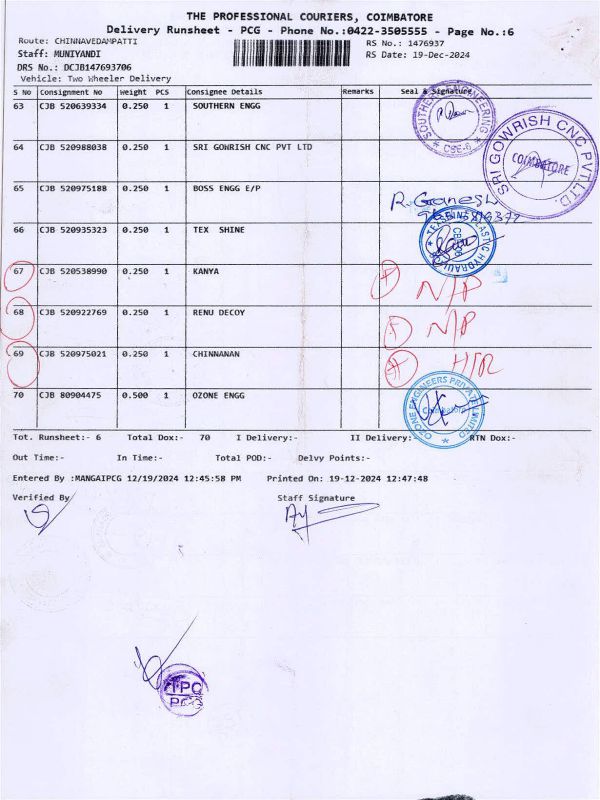 THE PROFESSIONAL COURIERS, COIMBATORE
Delivery Runsheet - PCG - Phone No.:0422-3505555 - Page No.:6
Route: CHINNAVEDAMPATTI
RS No.: 1476937
Staff: MUNIYANDI
RS Date: 19-Dec-2024
DRS No.: DCJB147693706
Vehicle: Two Wheeler Delivery
S No Consignment No Weight PCS Consignee Details Remarks Seal & Signature
63 CJB 520639334 0.250 1 SOUTHERN ENGG
SOUTHERN ENGINEERING
CBE-6
64 CJB 520988038 0.250 1 SRI GOWRISH CNC PVT LTD
SRI GOWRISH CNC PVT.LTD.
COIMBATORE
65 CJB 520975188 0.250 1 BOSS ENGG E/P
R. Ganesh
66 CJB 520935323 0.250 1 TEX SHINE
67 CJB 520538990 0.250 1 KANYA
N/P
68 CJB 520922769 0.250 1 RENU DECOY
N/P
69 CJB 520975021 0.250 1 CHINNANAN
70 CJB 80904475 0.500 1 OZONE ENGG
OZONE ENGINEERS PRIVATE LIMITED
Tot. Runsheet:- 6 Total Dox:- 70 I Delivery:- II Delivery:- RTN Dox:-
Out Time:- In Time:- Total POD:- Delvy Points:-
Entered By :MANGAIPCG 12/19/2024 12:45:58 PM Printed On: 19-12-2024 12:47:48
Verified By Staff Signature
TPC
PCG